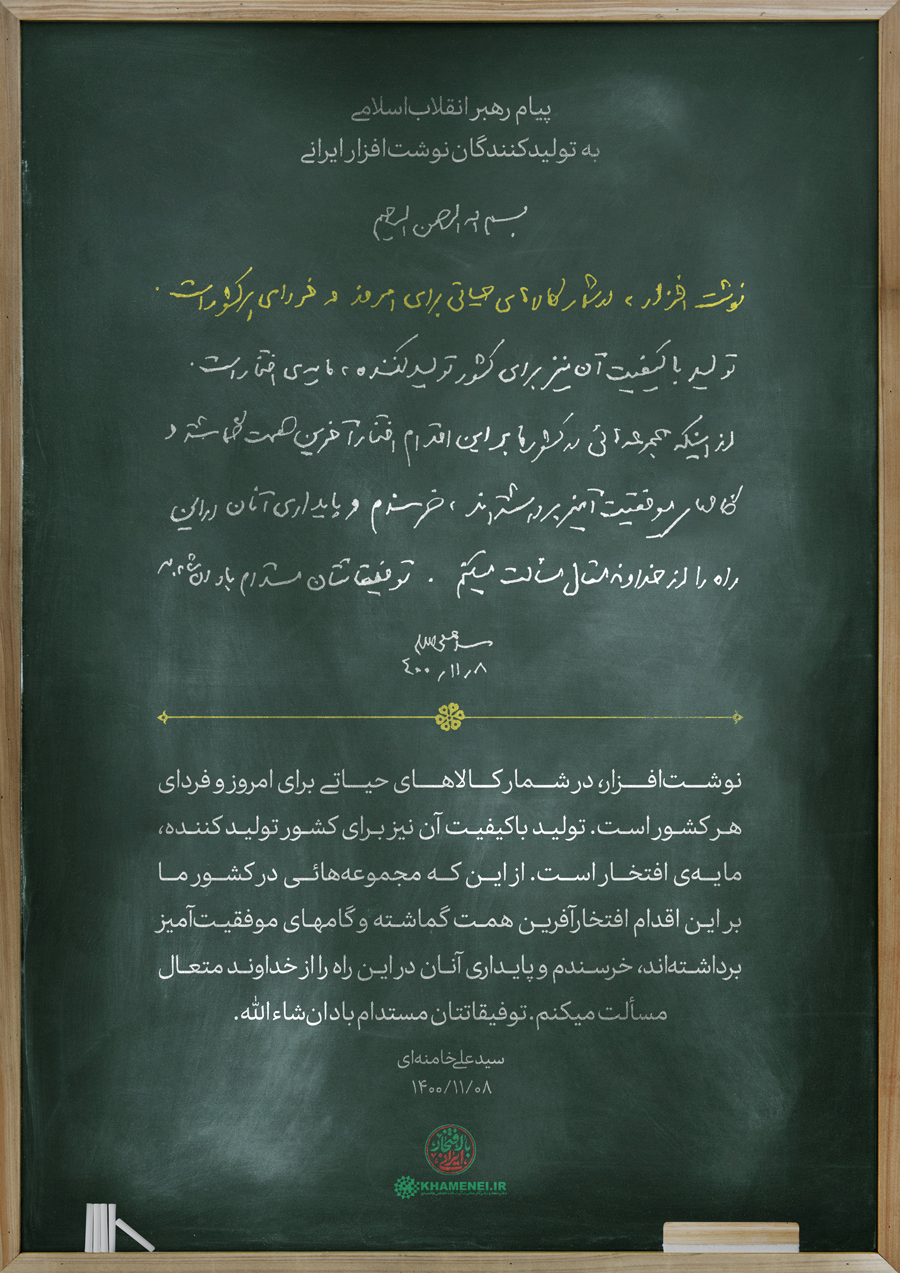 پیام رهبر انقلاب اسلامی
به تولیدکنندگان نوشت‌افزار ایرانی
بسم الله الرحمن الرحیم
نوشت افزار، در شمار کالاهای حیاتی برای امروز و فردای هر کشور است.
تولید با کیفیت آن نیز برای کشور تولید کننده، مایه‌ی افتخار است.
از اینکه مجموعه‌هائی در کشور ما بر این اقدام افتخارآفرین همت گماشته و
گامهای موفقیت آمیز برداشته‌اند، خرسندم و پایداری آنان در این
راه را از خداوند متعال مسألت میکنم. توفیقاتتان مستدام باد ان‌شاءالله
سیدعلی خامنه‌ای
۴۰۰/۱۱/۸
نوشت‌افزار، در شمار کالاهای حیاتی برای امروز و فردای
هر کشور است. تولید باکیفیت آن نیز برای کشور تولید کننده،
مایه‌ی افتخار است. از این که مجموعه‌هائی در کشور ما
بر این اقدام افتخارآفرین همت گماشته و گامهای موفقیت‌آمیز
برداشته‌اند، خرسندم و پایداری آنان در این راه را از خداوند متعال
مسألت میکنم. توفیقاتتان مستدام باد ان‌شاءالله.
سیدعلی خامنه‌ای
۱۴۰۰/۱۱/۰۸
با افتخار ایرانی
KHAMENEI.IR